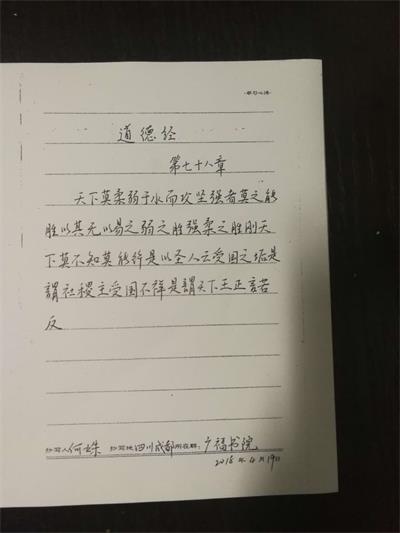 ·学习心得·
道德经
第七十八章
天下莫柔弱于水而攻坚强者莫之能
胜以其无以易之弱之胜强柔之胜刚天
下莫不知莫能行是以圣人云受国之垢是
謂社稷主受国不祥是謂天下王正言若
反
抄写人何姝 抄写地四川成都所在群:广福书院
2018年4月19日